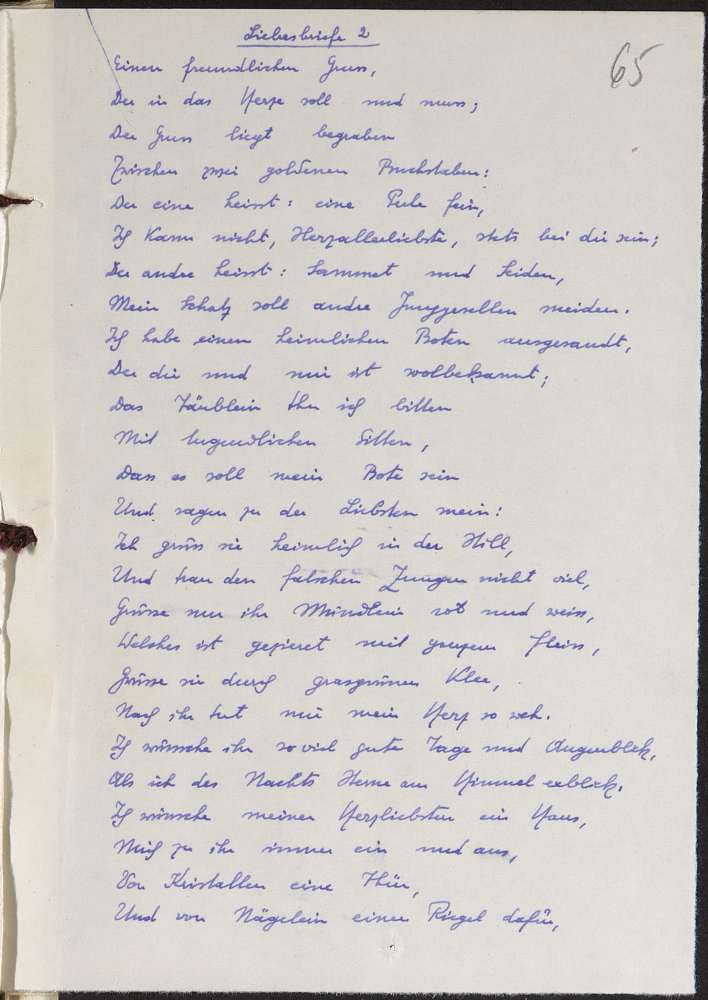 Liebesbriefe 2
65
Einen freundlichen Gruss,
Der in das Herze soll und muss;
Der Gruss liegt begraben
Zwischen zwei goldenen Buchstaben:
Der eine heisst: eine Perle fein,
Ich kann nicht, Herzallerliebste, stets bei dir sein;
Der andre heisst: Sammet und Seiden,
Mein Schatz soll andre Junggesellen meiden.
Ich habe einen heimlichen Boten ausgesandt,
Der dir und mir ist wolbekannt;
Das Täublein thu ich bitten
Mit tugendlichen Sitten,
Dass es soll mein Bote sein
Und sagen zu der Liebsten mein:
Ich grüss sie heimlich in der Still,
Und trau den falschen Zungen nicht viel,
Grüsse mir ihr Mündlein rot und weiss,
Welches ist gezieret mit ganzem Fleiss,
Grüsse sie durch grasgrünen Klee,
Nach ihr tut mir mein Herz so weh.
Ich wünsche ihr so viel gute Tage und Augenblick,
Als ich des Nachts Sterne am Himmel erblick.
Ich wünsche meiner Herzliebsten ein Haus,
Mich zu ihr immer ein und aus,
Von Kristallen eine Thür,
Und von Nägelein einen Riegel dafür,